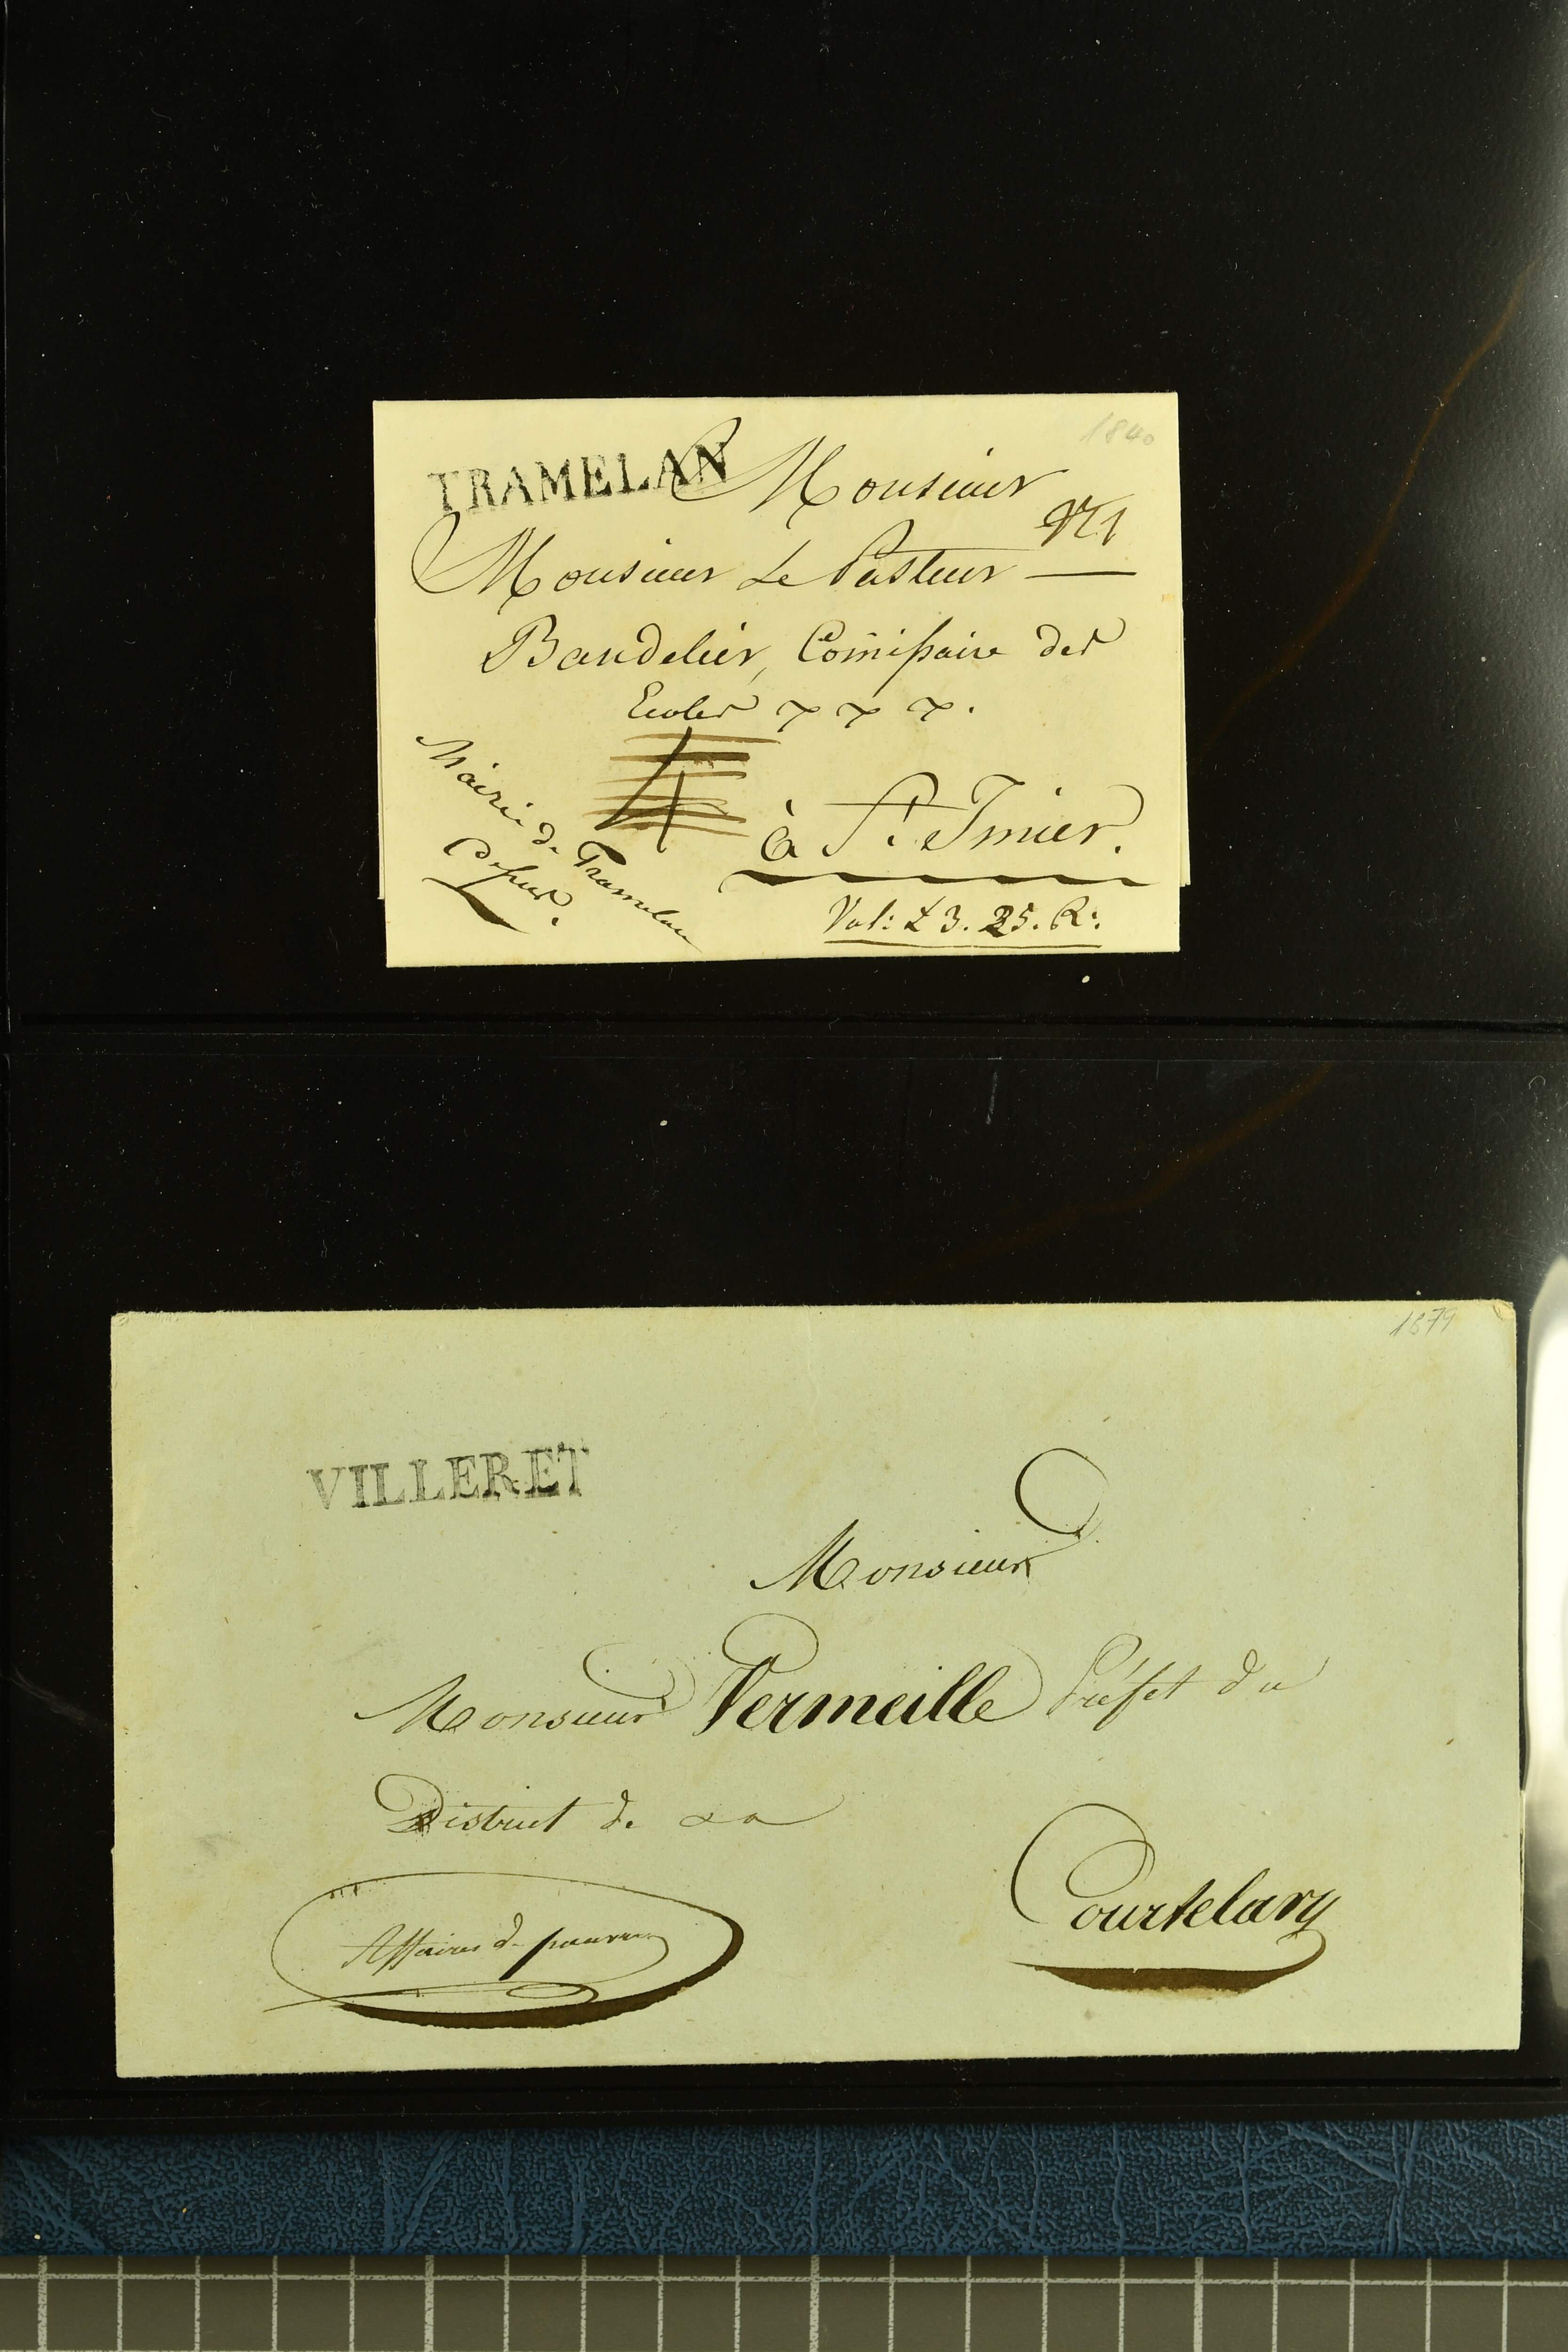 1840
TRAMELAN
Monsieur
N 1
Monsieur Le Pasteur
Bandelier, Com̄issaire des
Ecoles
4
Mairie de Tramelan
Dessus.
à St. Imier.
Val: L 3. 25. R:
1879
VILLERET
Monsieur
Monsieur Vermeille Préfet du
District de
Courtelary
Affaires de pauvres